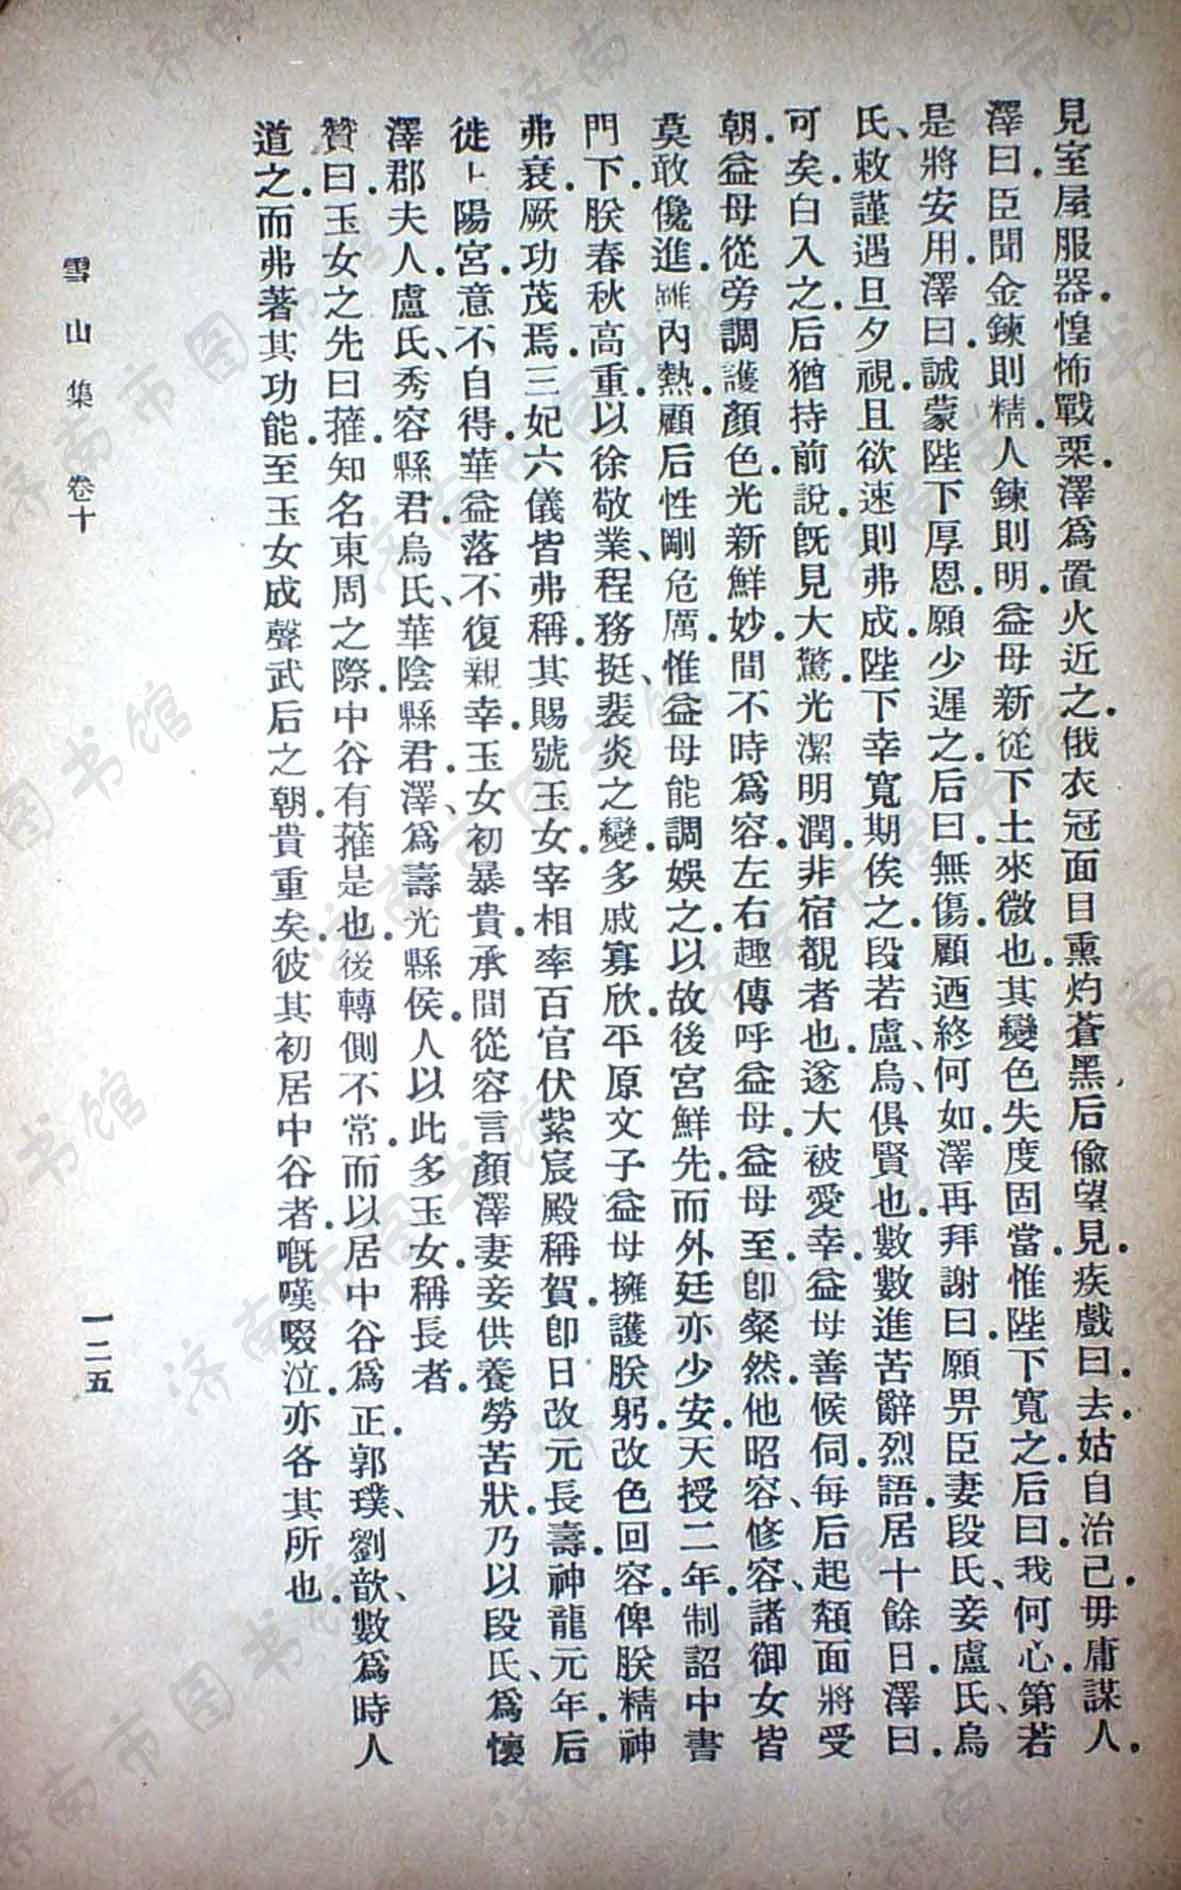 見室屋服器惶怖戰栗.澤爲置火近之.俄衣冠面目熏灼蒼黑.后偸望見.疾戲曰.去.姑自治己.毋庸謀人.
澤曰.臣聞金鍊則精.人鍊則明.益母新從下土來.微也.其變色失度固當.惟陛下寬之.后曰.我何心.第若
是將安用.澤曰.誠蒙陛下厚恩.願少遲之.后曰.無傷.顧迺終何如.澤再拜謝曰.願畀臣妻段氏、妾盧氏、烏
氏、敕謹遇旦夕視.且欲速則弗成.陛下幸寬期俟之.段若盧、烏、俱賢也.數數進苦辭烈語.居十餘日.澤曰.
可矣.白入之.后猶持前說.旣見大驚.光潔明潤.非宿覩者也.遂大被愛幸.益母善候伺.每后起頮面將受
朝.益母從旁調護顏色.光新鮮妙.間不時爲容.左右趣傳呼益母.益母至.卽粲然.他昭容、修容、諸御女皆
莫敢儳進.雖內熱.顧后性剛危厲.惟益母能調娛之.以故後宮鮮先.而外廷亦少安.天授二年.制詔中書
門下.朕春秋高.重以徐敬業、程務挺、裴炎之變.多戚寡欣.平原文子益母擁護朕躬.改色回容.俾朕精神
弗衰.厥功茂焉.三妃六儀皆弗稱.其賜號玉女.宰相率百官伏紫宸殿稱賀.卽日改元長壽.神龍元年.后
徙上陽宮.意不自得.華益落.不復親幸.玉女初暴貴.承間從容言顏澤妻妾供養勞苦狀.乃以段氏、爲懷
澤郡夫人.盧氏、秀容縣君.烏氏、華陰縣君.澤、爲壽光縣侯.人以此多玉女.稱長者.
贊曰.玉女之先曰蓷.知名東周之際.中谷有蓷是也.後轉側不常.而以居中谷爲正.郭璞、劉歆、數爲時人
道之.而弗著其功能.至玉女成聲武后之朝.貴重矣.彼其初居中谷者.嘅嘆啜泣.亦各其所也.
雪山集 卷十 一二五
济南市图书馆